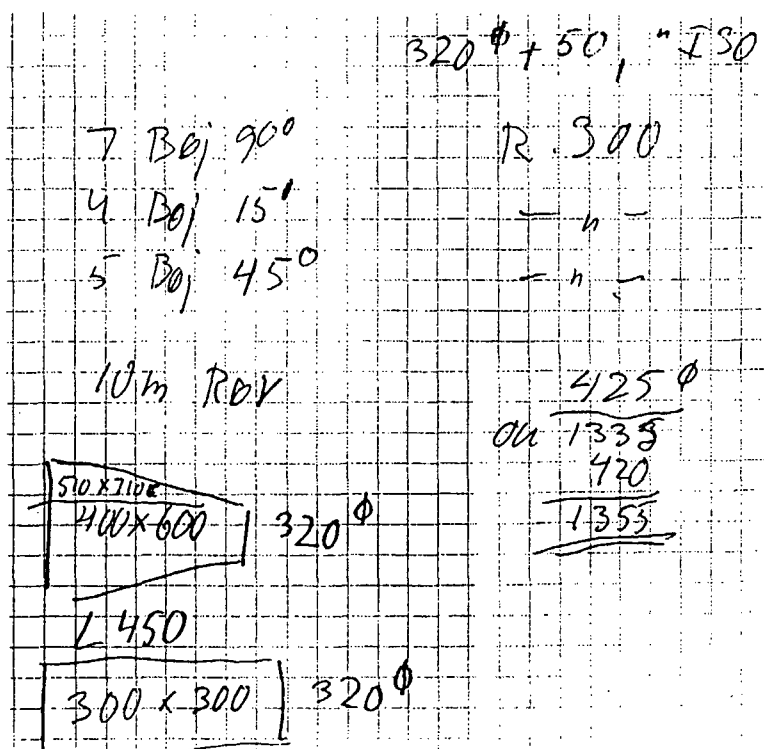 320⌀ + 50, " ISO
7 Böj 90° R. 300
4 Böj 15° — " —
5 Böj 45° — " —
10m Rör
425⌀
1335
420
1355
510x710
400x600 320⌀
L 450
300 x 300 320⌀